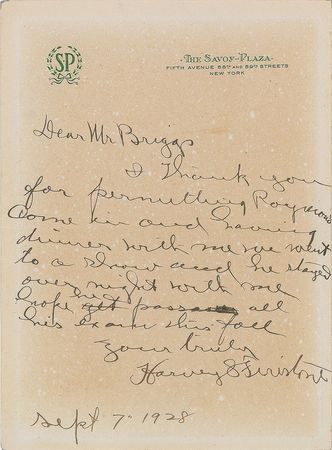 SP
·THE SAVOY-PLAZA·
FIFTH AVENUE 58TH AND 59TH STREETS
NEW YORK
Dear Mr Briggs
I Thank you
for permitting Raymond
Come in and having
dinner with me we went
to a show and he stayed
over night with me
hope he get pass all
his exam this fall
your truly
Harvey S Firestone
Sept 7- 1928